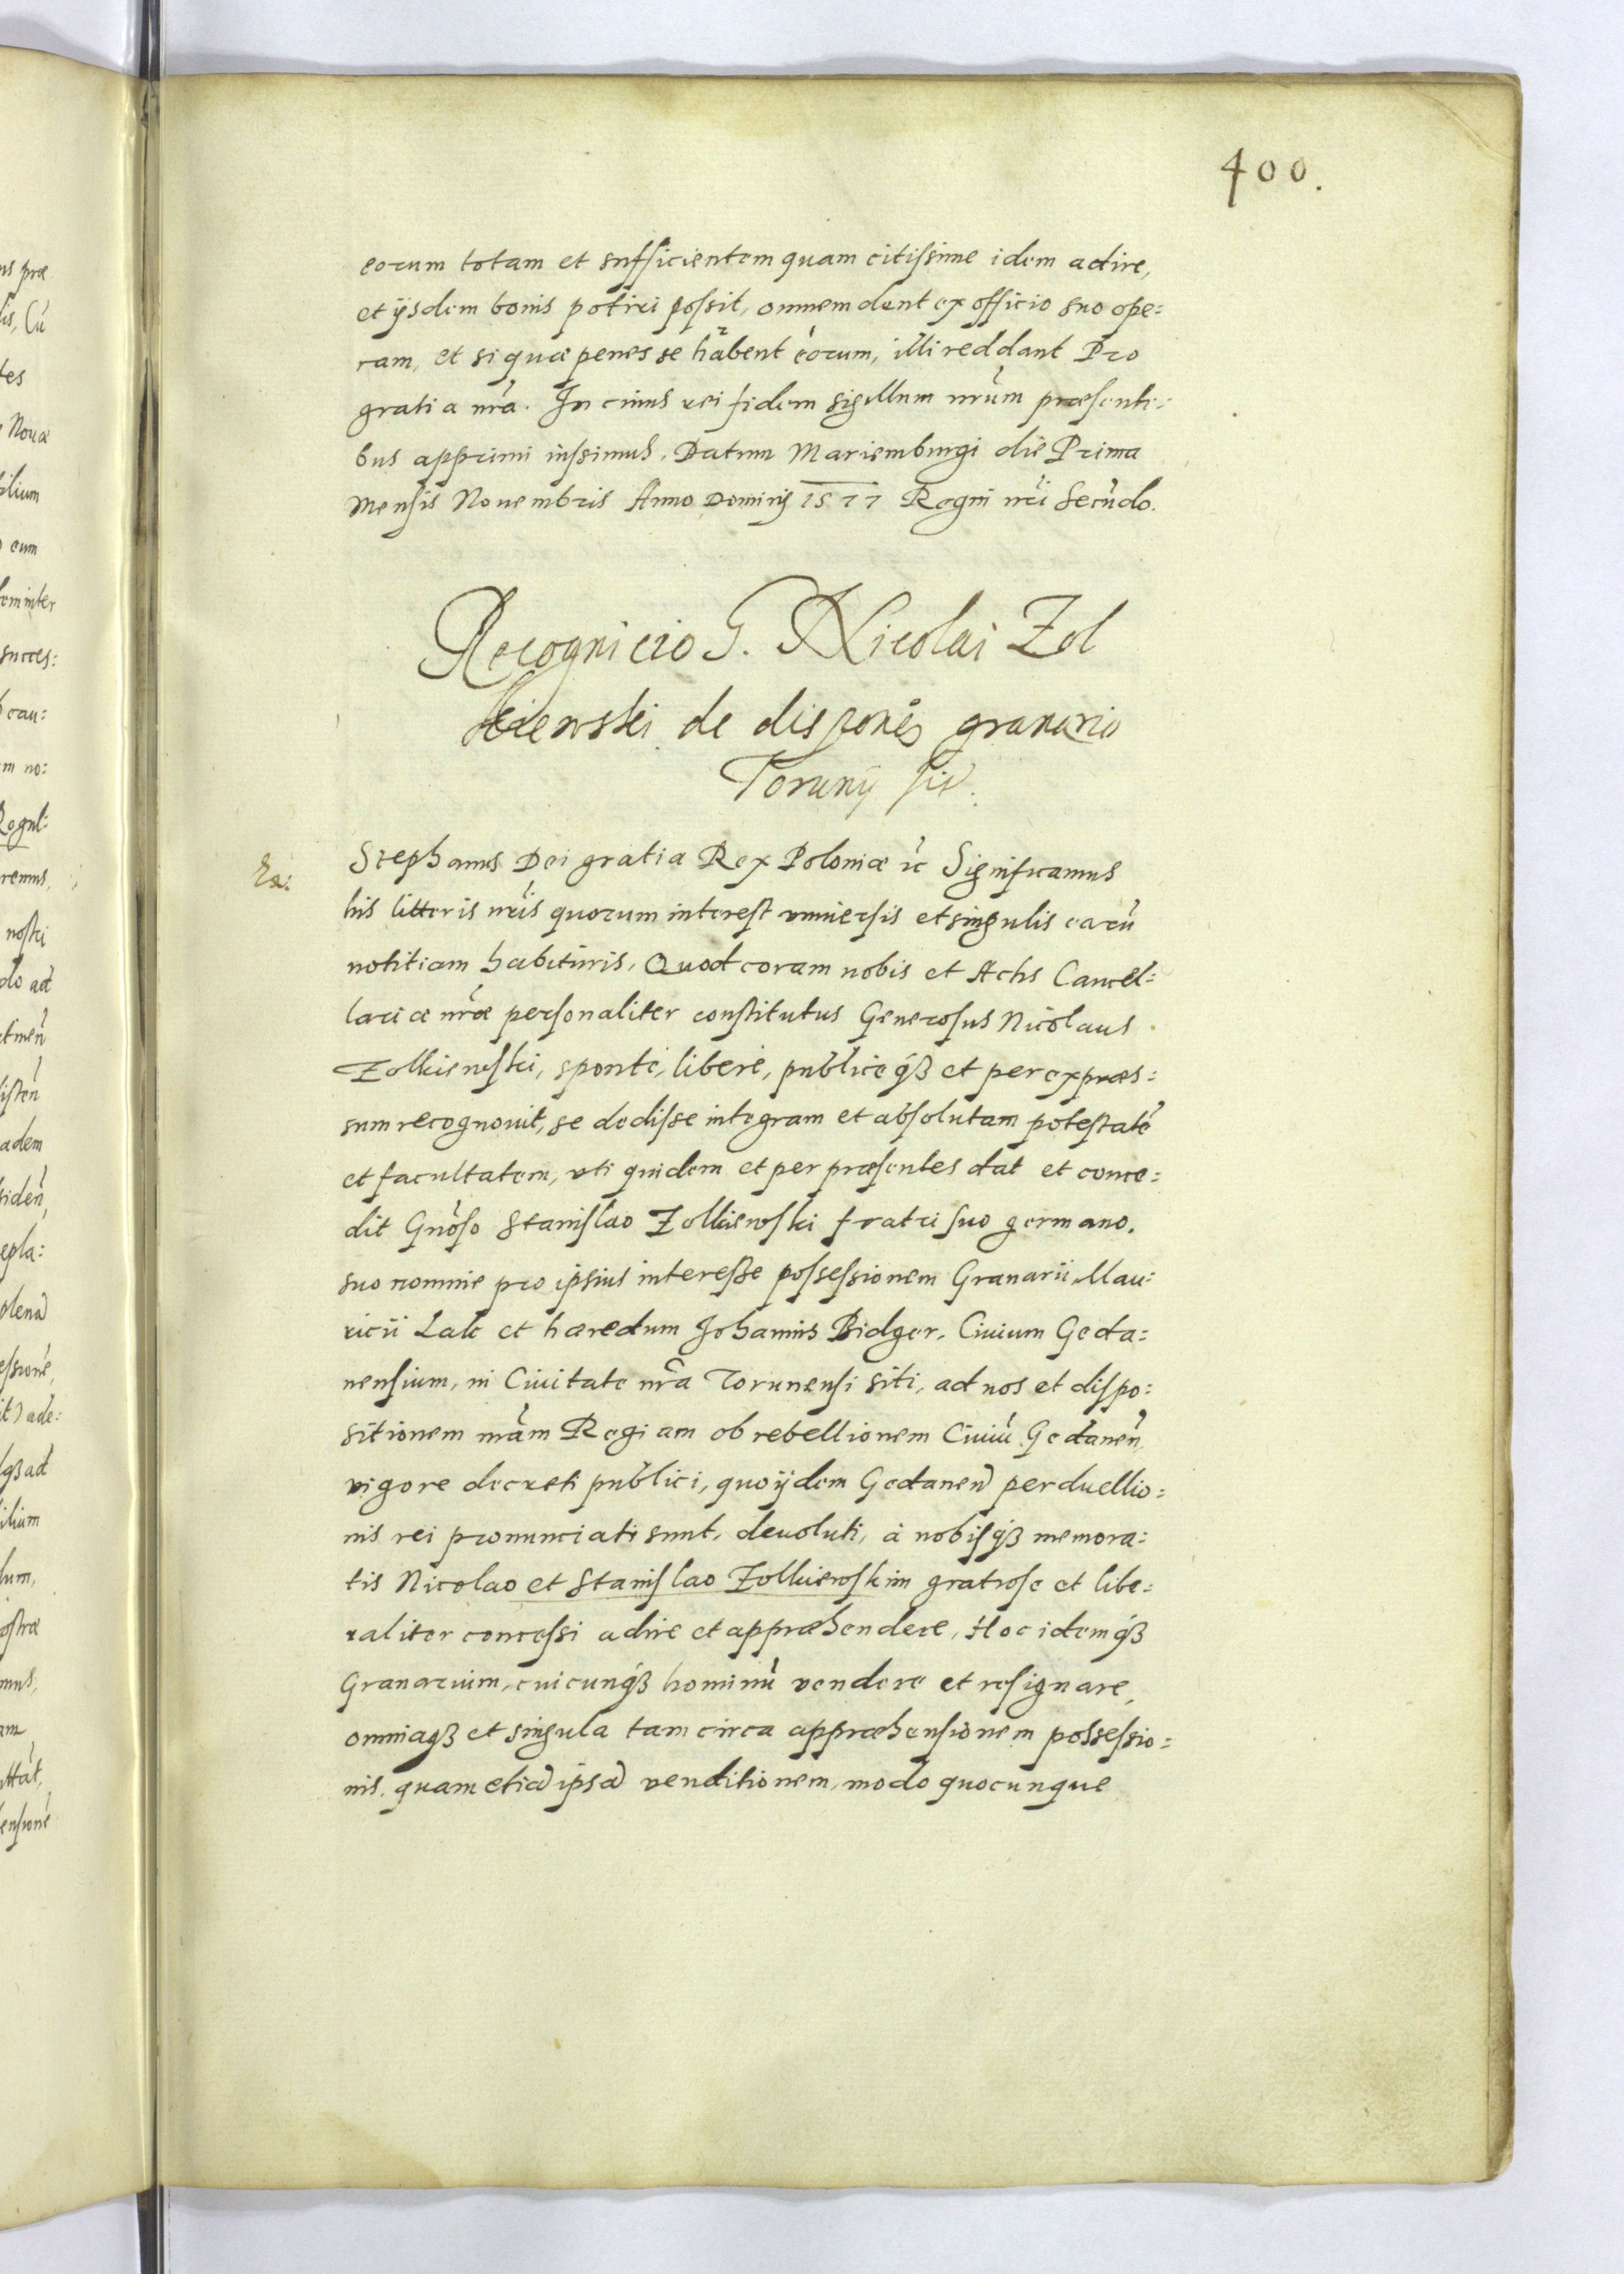 400.
eorum totam et sufficientem quam citissime idem adire,
et ijsdem bonis potiri possit, omnem dent ex officio suo ope=
ram, et si quæ penes se habent eorum, illi reddant Pro
gratia nrã. In cuius rei fidem sigillum nrũm præsenti=
bus apprimi iussimus. Datum Mariemburgi die Prima
Mensis Nouembris Anno Dominij 1577 Regni nrĩ Secũdo.
Recognicio G. Nicolai Zol
kiewski de disponẽ granario
Torunij
Stephanus Dei gratia Rex Poloniæ ĩc Significamus
his litteris nrĩs quorum interest vniuersis et singulis earũ
notitiam habituris, Quod coram nobis et Actis Cancel=
lariæ nræ̃ personaliter constitutus Generosus Nicolaus
Zolkiewski, sponte, libere, publice qз et per expræs=
sum recognouit, se dedisse integram et absolutam potestatẽ
et facultatem, vti quidem et per præsentes dat et conce=
dit Gnõso Stanislao Zolkiewski fratri suo germano,
suo nomine pro ipsius interesse possessionem Granarii Mau=
ricii Lalc et hæredum Johannis Bidger, Ciuium Geda=
nensium, in Ciuitate nrã Torunensi siti, ad nos et dispo=
sitionem nrãm Regiam ob rebellionem Ciuiũ Gedanen̄
vigore decreti publici, quo ijdem Gedanen̄ perduellio=
nis rei pronunciati sunt, deuoluti, à nobisqз memora=
tis Nicolao et Stanislao Zolkiewskim gratiose et libe=
raliter concessi adire et appræhendere, Hoc idemqз
Granarium, cuicunqз hominũ vendere et resignare,
omniaqз et singula tam circa appræhensionem possessio=
nis, quam etiã ipsã venditionem, modo quocunque